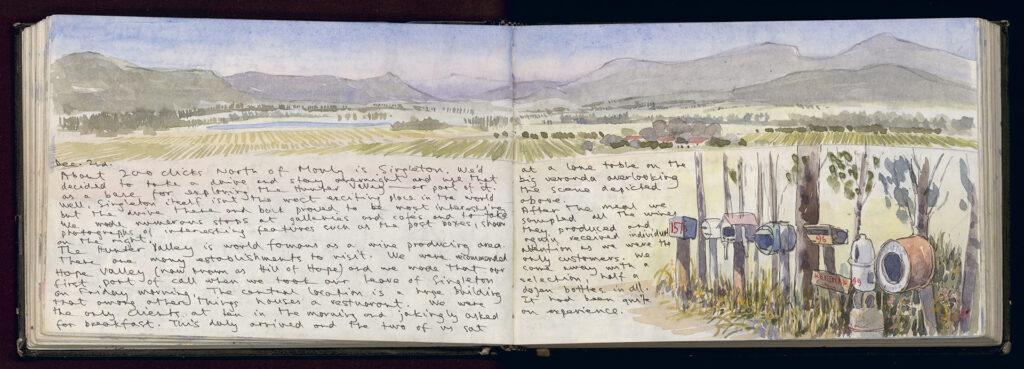 Dec. 2nd.
About 200 clicks North of Mowla is Singleton. We'd
decided to take a drive and stay overnight and use that
as a base for exploring the Hunter Valley - or part of it.
Well Singleton itself isn't the most exciting place in the world
but the drive there and back proved to be most interesting.
We made numerous stops at galleries and cafes and to take
photographs of interesting features such as the post boxes, shown
on the right.
The Hunter Valley is world famous as a wine producing area.
There are many establishments to visit. We were recommended
Hope Valley (now known as Hill of Hope) and we made that our
first port of call when we took our leave of Singleton
on Friday morning. The central location is a huge building
that among other things houses a restaurant. We were
the only guests at 10am in the morning and jokingly asked
for breakfast. This duly arrived and the two of us sat
at a lone table on the
big veranda overlooking
the scene depicted
above.
After the meal we
sampled all the wines
they produced and
really received individual
attention as we were the
only customers. We
came away with a
selection, half a
dozen bottles in all.
It had been quite
an experience.
1515
46
69